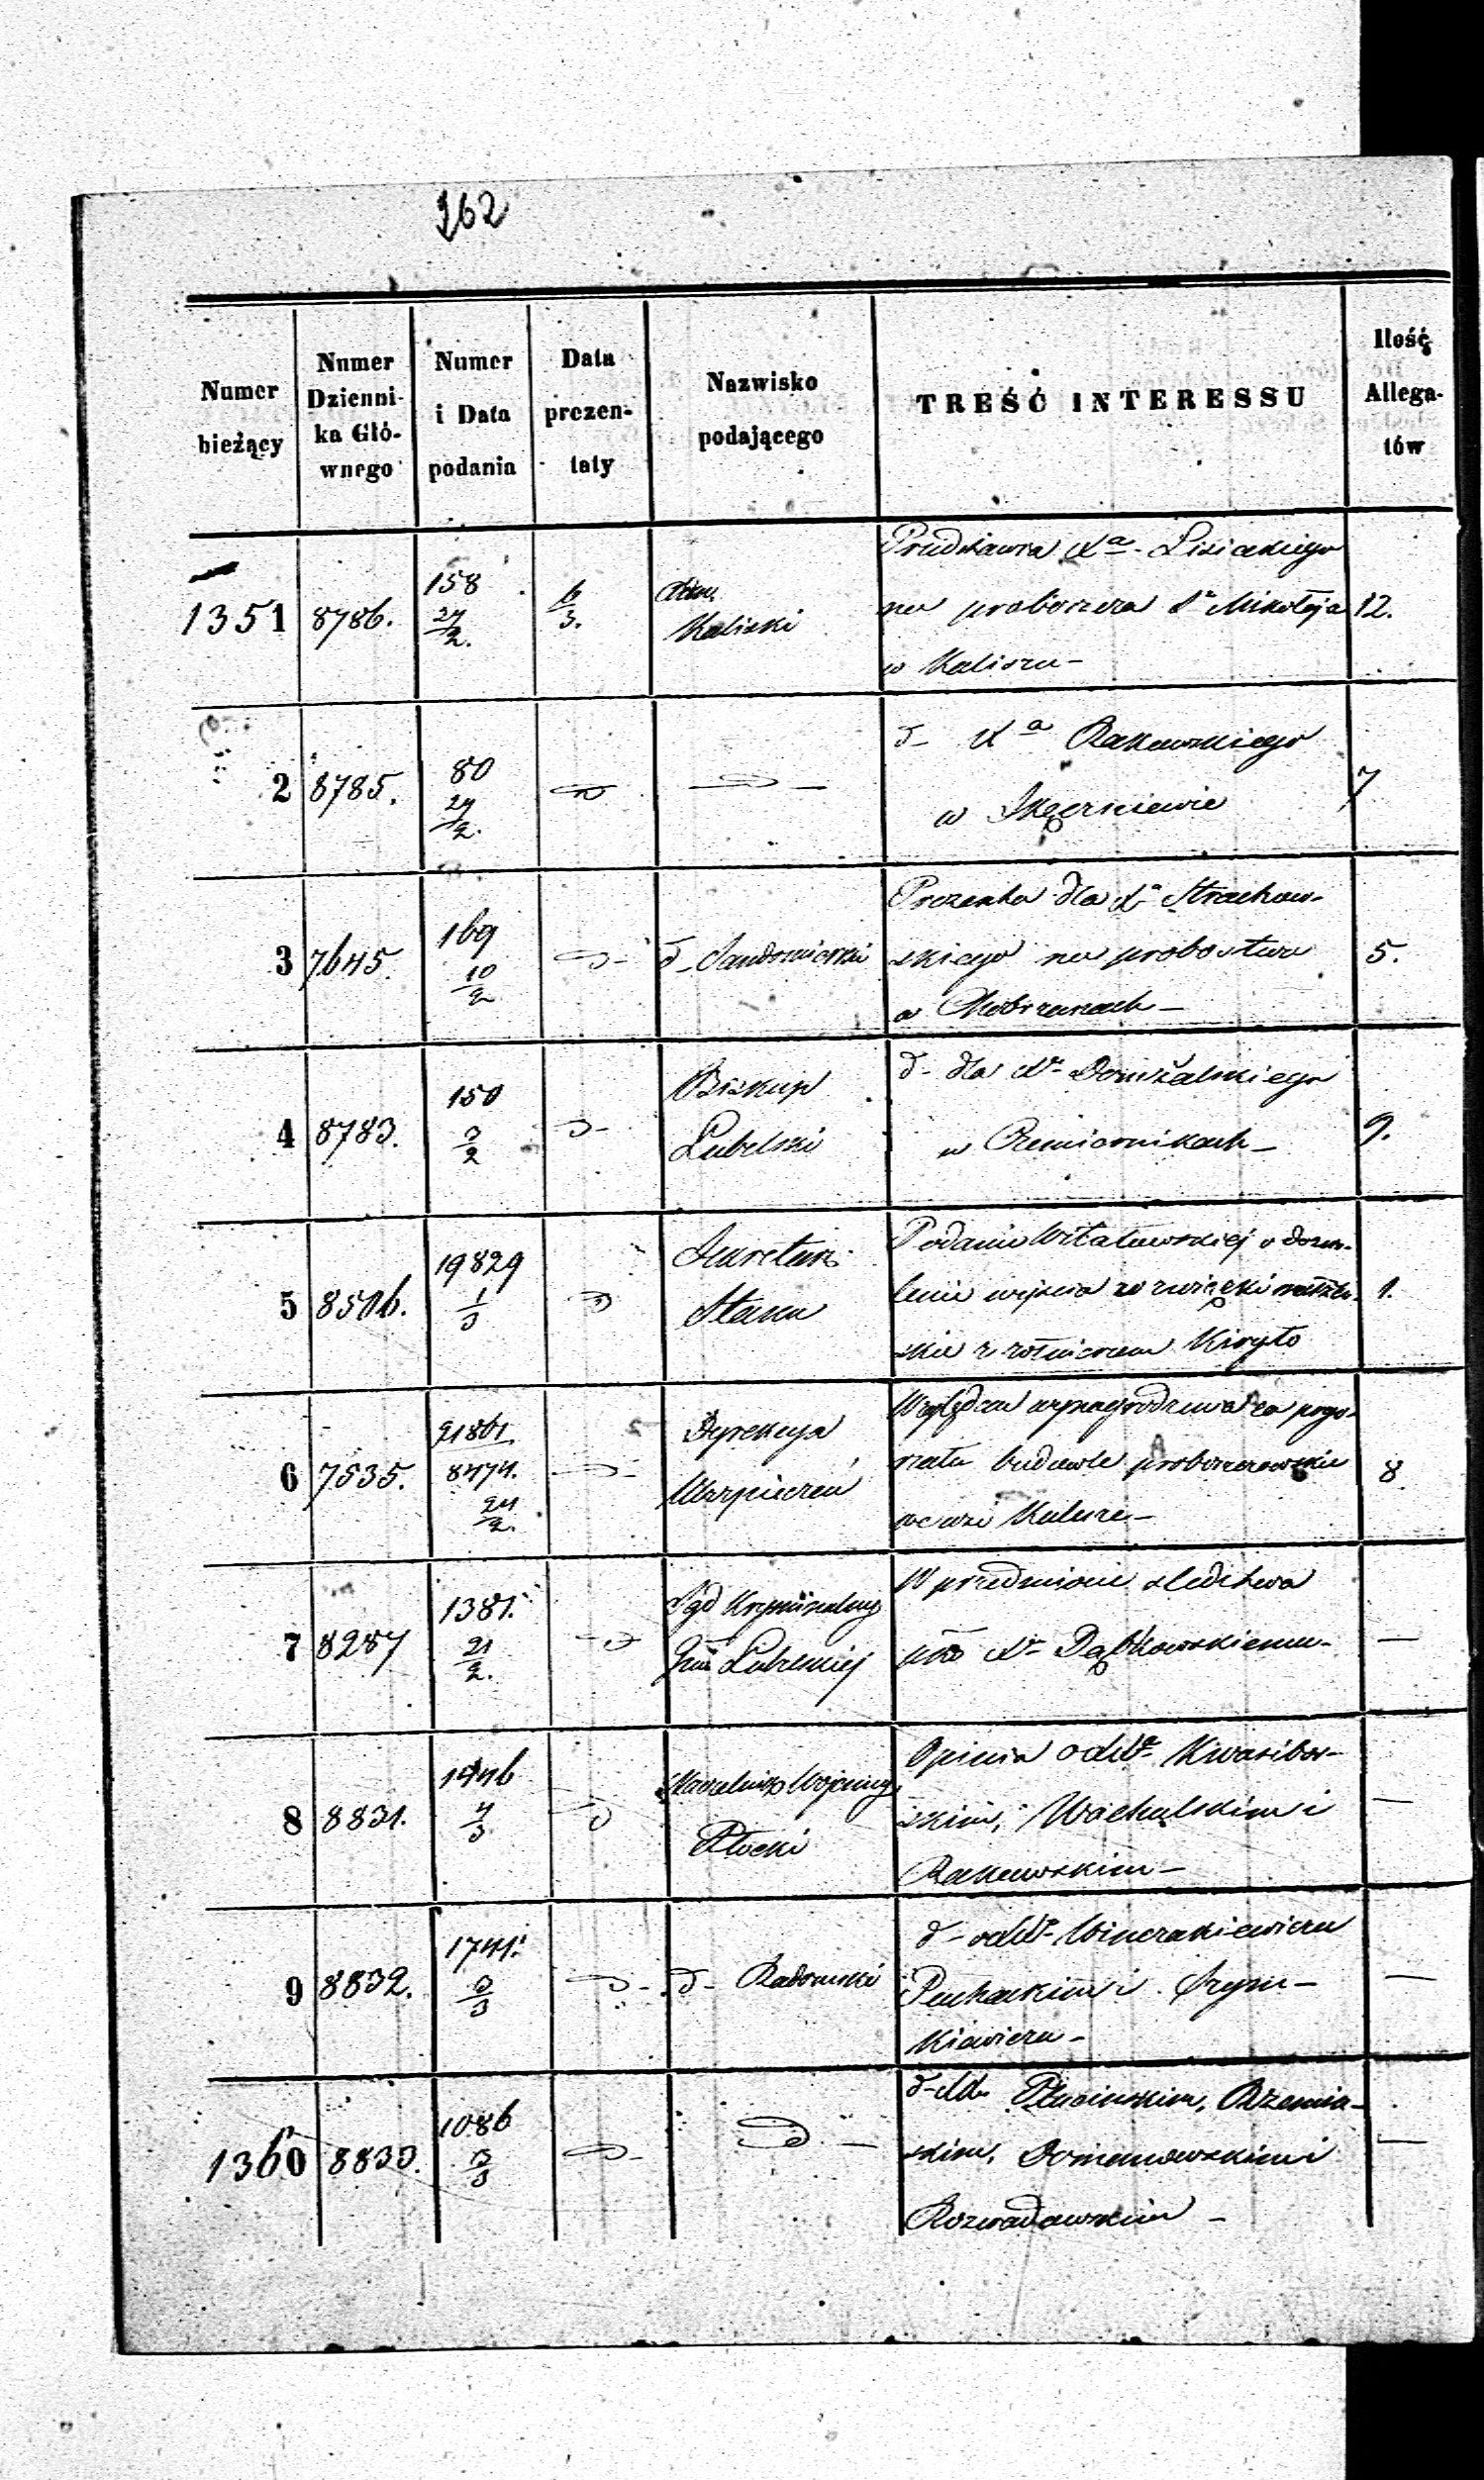 262
Numer bieżący
Numer Dzienni-ka Głó-wnego
Numer i Data podania
Data prezen-taty
Nazwisko podającego
TREŚĆ INTERESSU
Ilość Allega-tów
1351 8786. 158 27/2. 6/3. Kaliski
Przedstawia Xa Lisieckiego
na proboszcza Sº Mikołaja 12.
w Kaliszu -
2 8785. 80 27/2. d
d- Xa Rakowskiego
w 7
3 7645. 169 10/2 d- d- Sandomierski
Prezenta dla Xa Strachow-
skiego na probostwo 5.
w Chobrzanach -
4 8783. 150 3/2 d- Biskup Lubelski
d- dla Xa Domżalskiego
w Czemiernikach - 9.
5 8516. 19829 1/3 d Sekretarz Stanu
Podanie Witalewskiej o dozwo-
lenie wejścia w związki małżeń- 1.
skie z żołnierzem Kiryło
6 7535. 21861. 8474. 24/2. d- Dyrekcya Ubezpieczeń
Względem wynagrodzenia za pogo-
rzałe budowle proboszczowskie 8
we wsi
7 8287 1381. 21/2. d- Sąd Kryminalny Lubelskiej
W przedmiocie śledztwa
pko Xu Dąbkowskiemu - —
8 8831. 1446 4/3 d Naczelnik Wojenny Płocki
Opinia o Xa Kwasibor-
skim, Wachulskim i —
Rakowskim -
9 8832. 1741. 3/3 d- d- Radomski
d- o Xa Winczakiewiczu
i Szym- —
kiewiczu -
1360 8833. 1086 3/3 d- d —
d- Płucinskim,
skim, Domanowskim i —
Rozwadowskim -